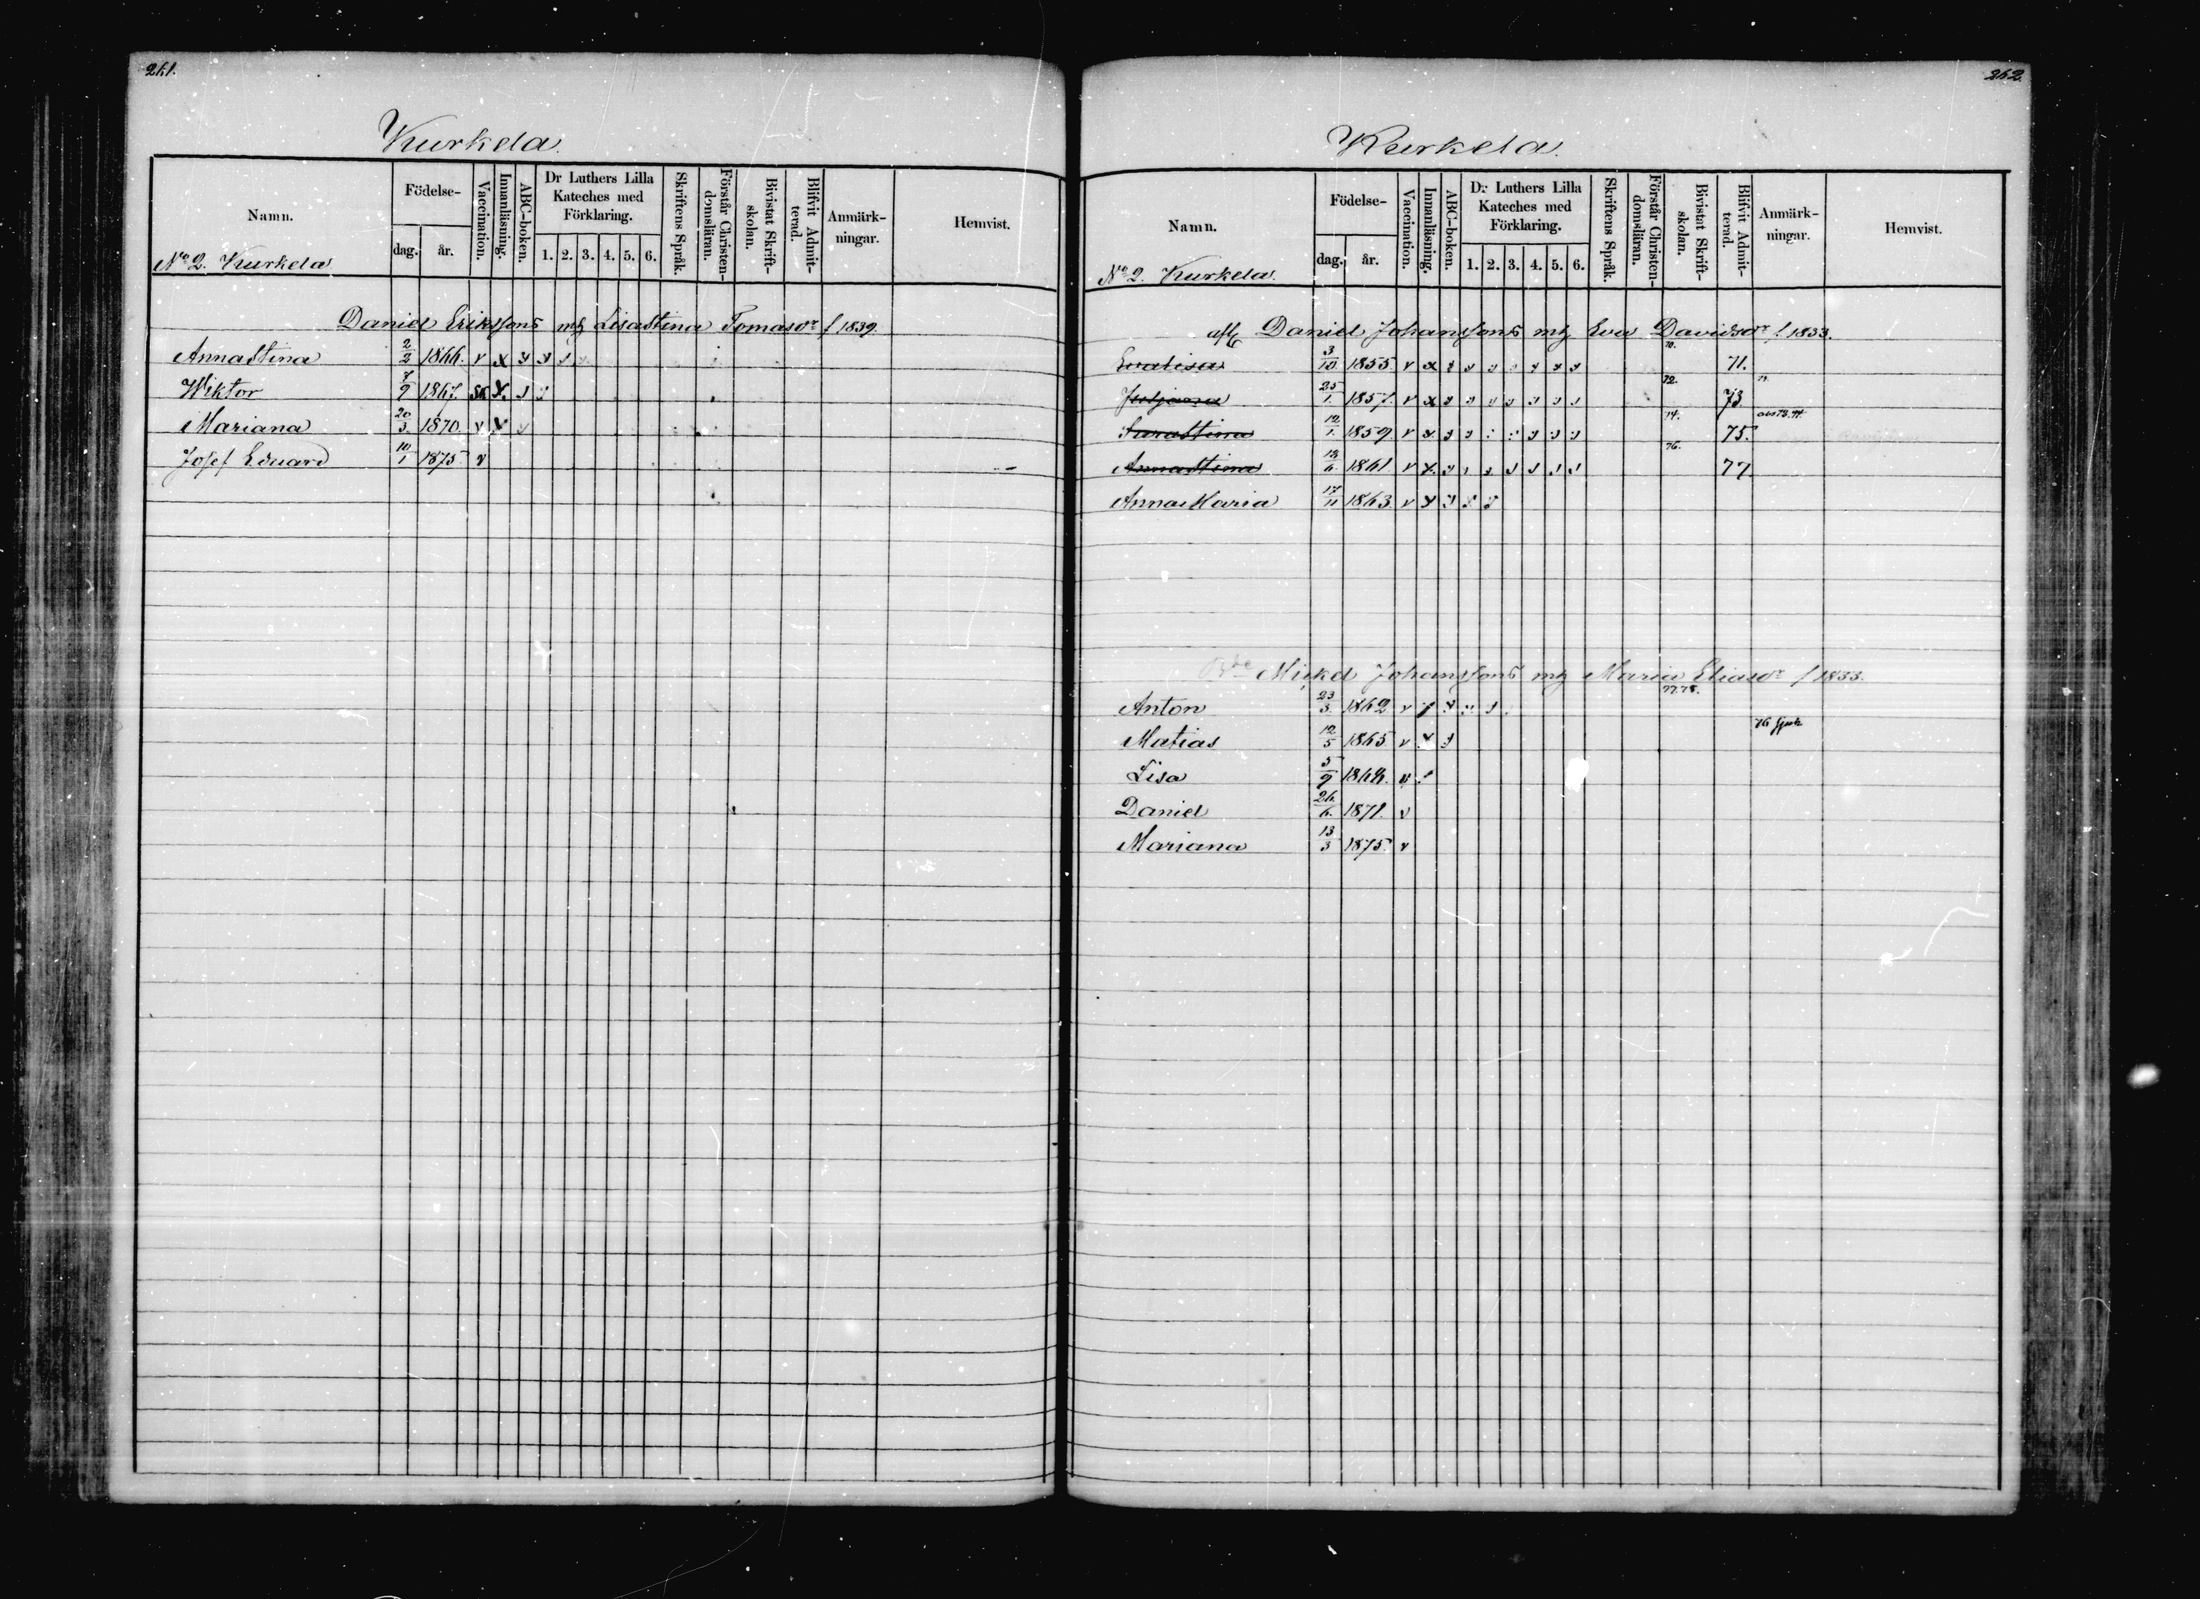 261.
Kurkela.
Namn.
Födelse-
dag.
år.
Vaccination.
Innanläsning.
ABC-boken.
Dr Luthers Lilla
Kateches med
Förklaring.
1. 2. 3. 4. 5. 6.
Skriftens Språk.
Förstår Christen-
domsläran.
Bivistat Skrift-
skolan.
Blifvit Admit-
terad.
Anmärk-
ningar.
Hemvist.
No 2. Kurkela
Daniel Erikssons mh Lisastina Tomasdr f 1839.
Annastina 2/2 1866. v x
Wiktor 7/9 1867. x
Mariana 20/3 1870. v x
Josef Eduard 10/1 1875 v
262.
Kurkela.
Namn.
Födelse-
dag.
år.
Vaccination.
Innanläsning.
ABC-boken.
Dr Luthers Lilla
Kateches med
Förklaring.
1. 2. 3. 4. 5. 6.
Skriftens Språk.
Förstår Christen-
domsläran.
Bivistat Skrift-
skolan.
Blifvit Admit-
terad.
Anmärk-
ningar.
Hemvist.
No 2. Kurkela.
Daniel Johanssons mh Eva Davidsdr f. 1833.
Evalisa 3/10 1855 v x 70. 71.
25/1 1857. v x 72. 73.
12/1 1859 v x 74. 75.
Annastina 1861. v x 76. 77
Anna Maria 17/11 1863. v x
Mickel Johanssons mh Maria Eliasdr f 1833.
Anton 23/3 1862 v 77.78.
Matias 12/5 1865 v x 76
Lisa 5/9 1868. v
Daniel 26/6. 1871. v
Mariana 13/3 1875. v